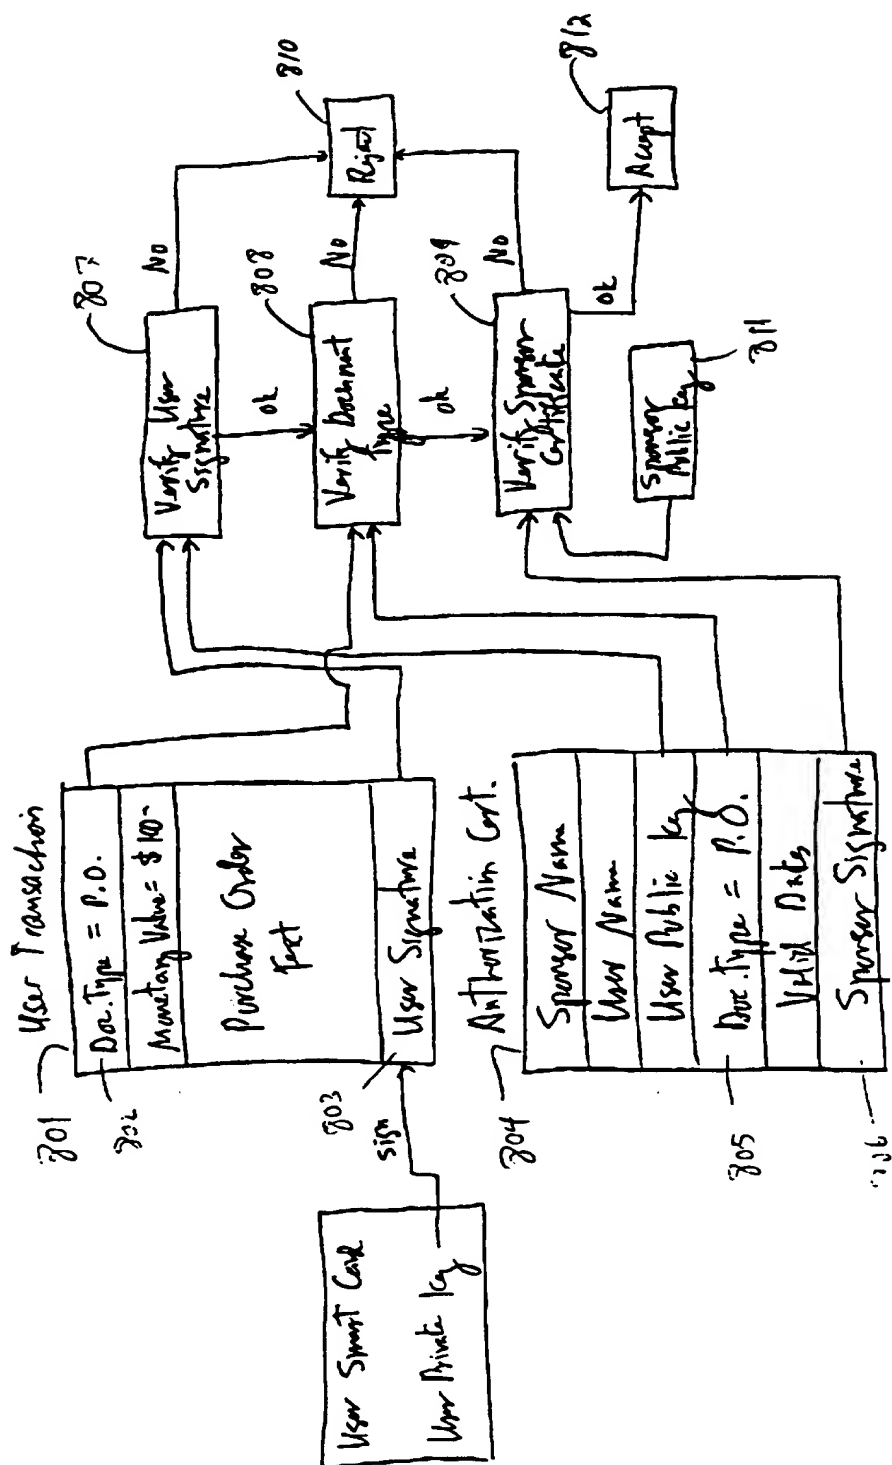 User Smart Card
User Private key
sign
User Transaction
801
802
Doc. Type = P.O.
Monetary Value = $100-
Purchase Order
Text
803
User Signature
Authorization Cert.
804
Sponsor Name
User Name
User Public key
805
Doc. Type = P.O.
Valid Dates
Sponsor Signature
807
Verify User
Signature
No
OK
808
Verify Document
Type
No
OK
809
Verify Sponsor
Certificate
No
OK
810
Reject
Sponsor
Public key
811
812
Accept